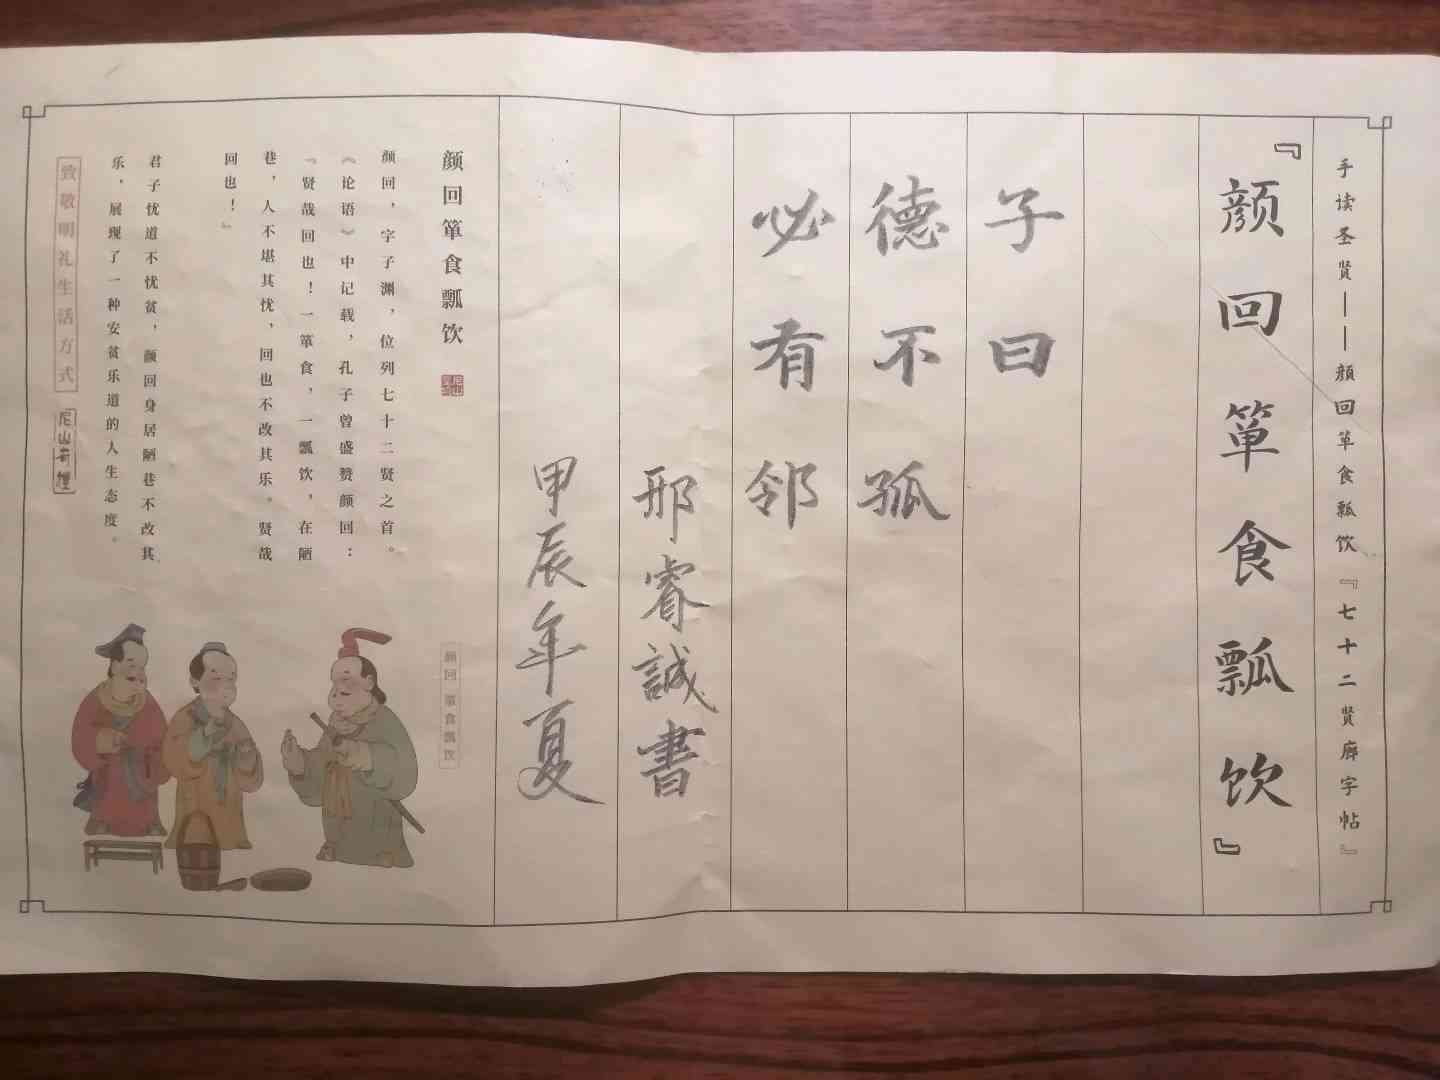 手读圣贤——颜回箪食瓢饮『七十二贤廊字帖』
『颜回箪食瓢饮』
子曰
德不孤
必有邻
邢睿誠書
甲辰年夏
颜回箪食瓢饮
颜回，字子渊，位列七十二贤之首。
《论语》中记载，孔子曾盛赞颜回：
『贤哉回也！一箪食，一瓢饮，在陋
巷，人不堪其忧，回也不改其乐。贤哉
回也！』
君子忧道不忧贫，颜回身居陋巷不改其
乐，展现了一种安贫乐道的人生态度。
致敬明礼生活方式
颜回 箪食瓢饮